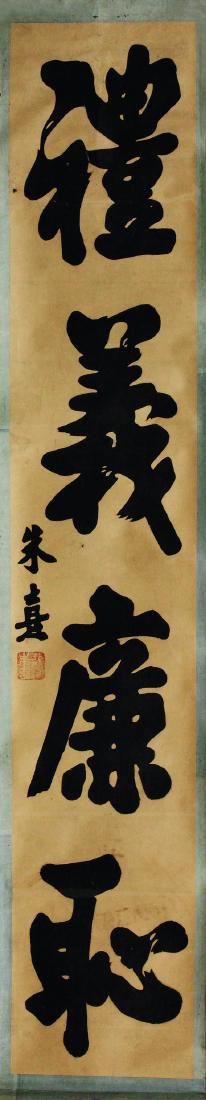 禮義廉恥
朱熹